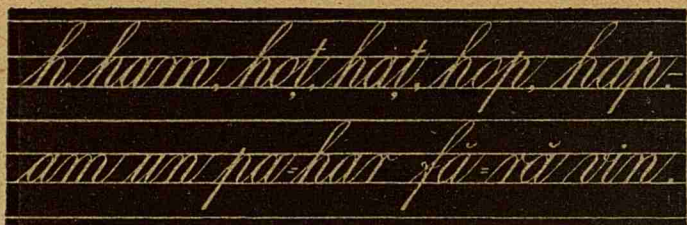 h, ham, hoț, haț, hop, hap.-
am un pa=har fă=ră vin.